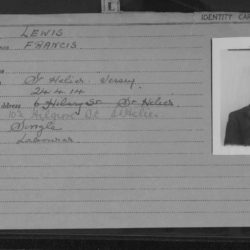 L
IDENTITY CAR
LEWIS
FRANCIS
St Helier. Jersey
24.4.14
address 6 Hilary St. St. Helier
St. Helier
Single
Labourer